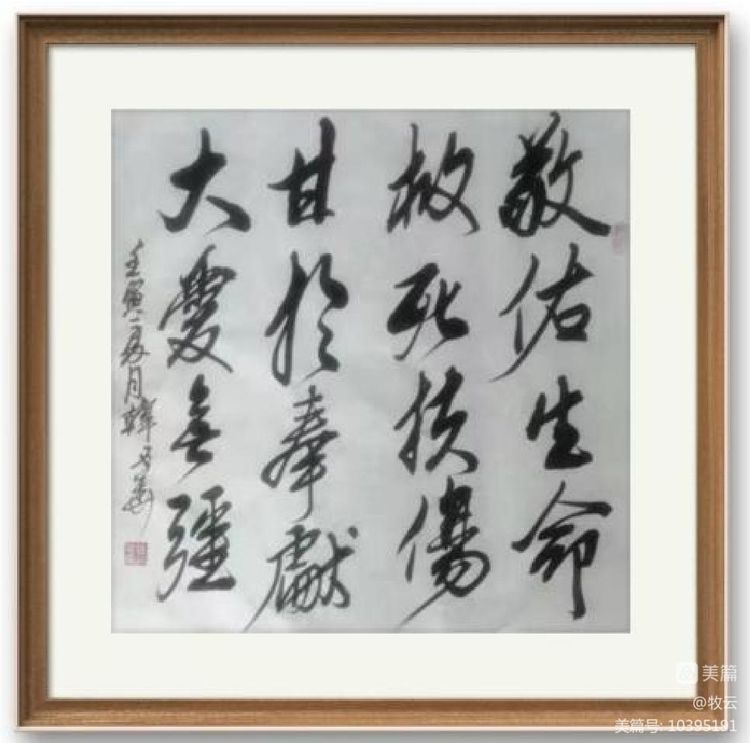 敬佑生命
救死扶傷
甘於奉獻
大愛無疆
壬寅二月韓
美篇
@牧云
美篇号: 10395191